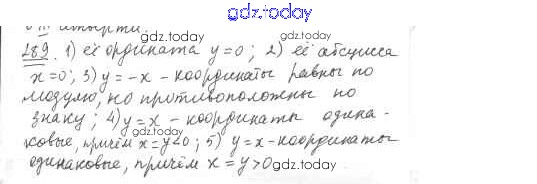 gdz.today
четверти.
289. 1) её ордината y=0; 2) её абсцисса
x=0; 3) y=-x - координаты равны по
модулю, но противоположны по
знаку; 4) y=x - координаты одина-
ковые, причём x=y<0; 5) y=x - координаты
одинаковые, причём x=y>0
gdz.today
gdz.today
gdz.today